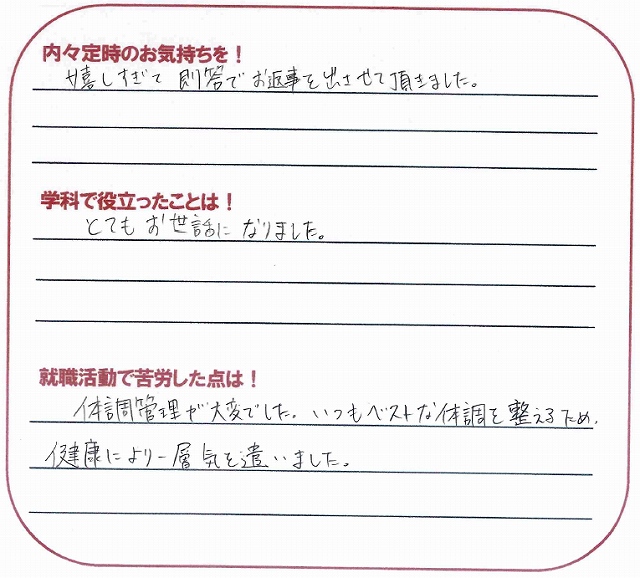 内々定時のお気持ちを！
嬉しすぎて 即答でお返事を出させて頂きました。
学科で役立ったことは！
とてもお世話になりました。
就職活動で苦労した点は！
体調管理が大変でした。いつもベストな体調を整えるため、
健康により一層気を遣いました。